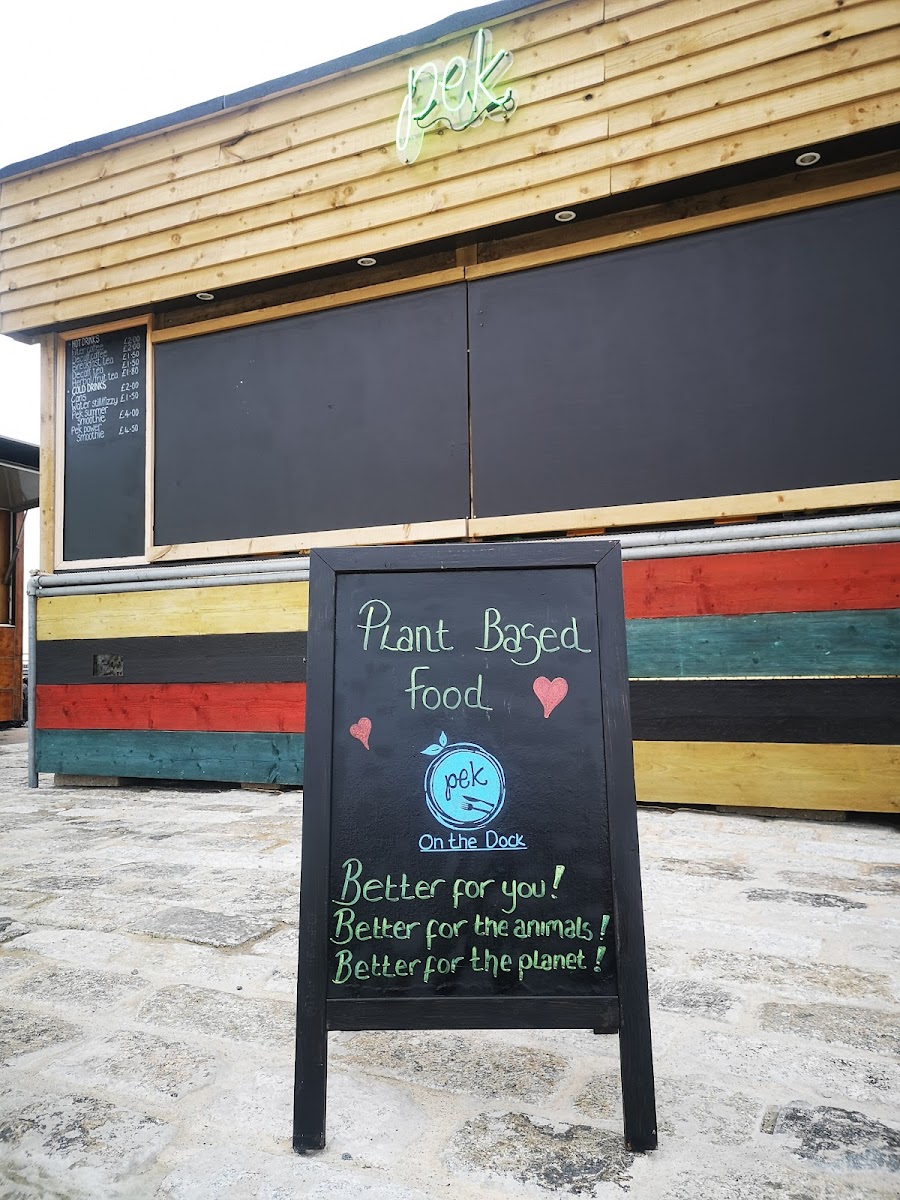 pek
HOT DRINKS
Filter coffee £2·00
Decaf coffee £2·00
Breakfast tea £1·50
Decaf tea £1·50
Herbal/fruit tea £1·80
COLD DRINKS
Cans £2·00
Water still/fizzy £1·50
Pek summer smoothie £4·00
Pek power smoothie £4·50
Plant Based
Food
pek
On the Dock
Better for you!
Better for the animals!
Better for the planet!